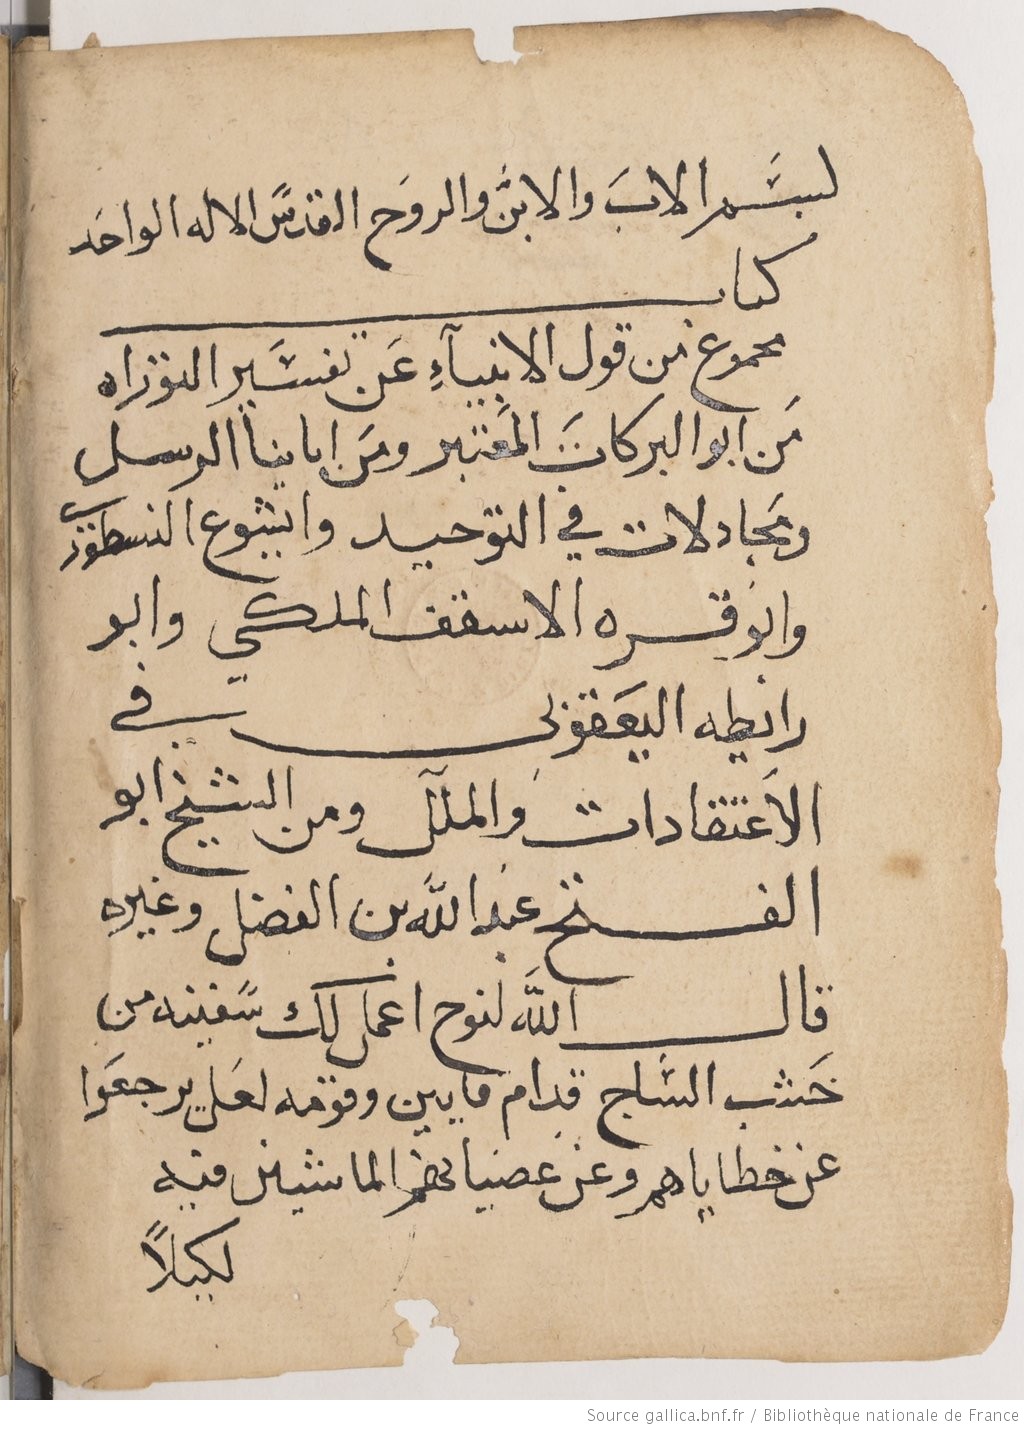 لبسم الاب والابن والروح القدس الاله الواحد
كتاب
مجموع من قول الانبيآء عن تفسير التوراه
من ابو البركات المعتبر ومن اباينا الرسل
ومجادلات في التوحيد وايشوع النسطوري
وابو قره الاسقف الملكي وابو
رايطه اليعقوبي في
الاعتقادات والملل ومن الشيخ ابو
الفتح عبد الله بن الفضل وغيره
قال الله لنوح اعمل لك سفينه من
خشب الساج قدام قايين وقومه لعل يرجعوا
عن خطاياهم وعن عصيانهم الماشيين فيه
لكيلاً
Source gallica.bnf.fr / Bibliothèque nationale de France